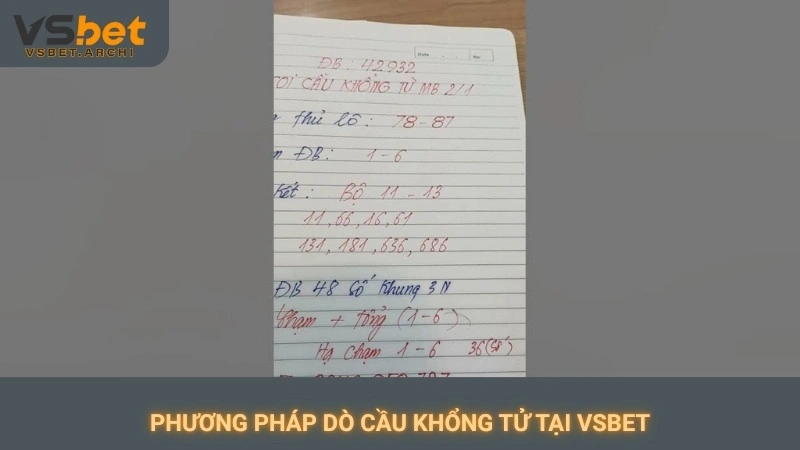 VSbet
VSBET.ARCHI
ĐB : 42932
CẦU KHỔNG TỬ MB 2/1
thủ lô : 78 - 87
ĐB : 1 - 6
Kết : Bộ 11 - 13
11, 66, 16, 61
131, 181, 636, 686
ĐB 48 Số Khung 3N
Chạm + tổng (1-6)
Hạ chạm 1-6 36 (Số)
PHƯƠNG PHÁP DÒ CẦU KHỔNG TỬ TẠI VSBET